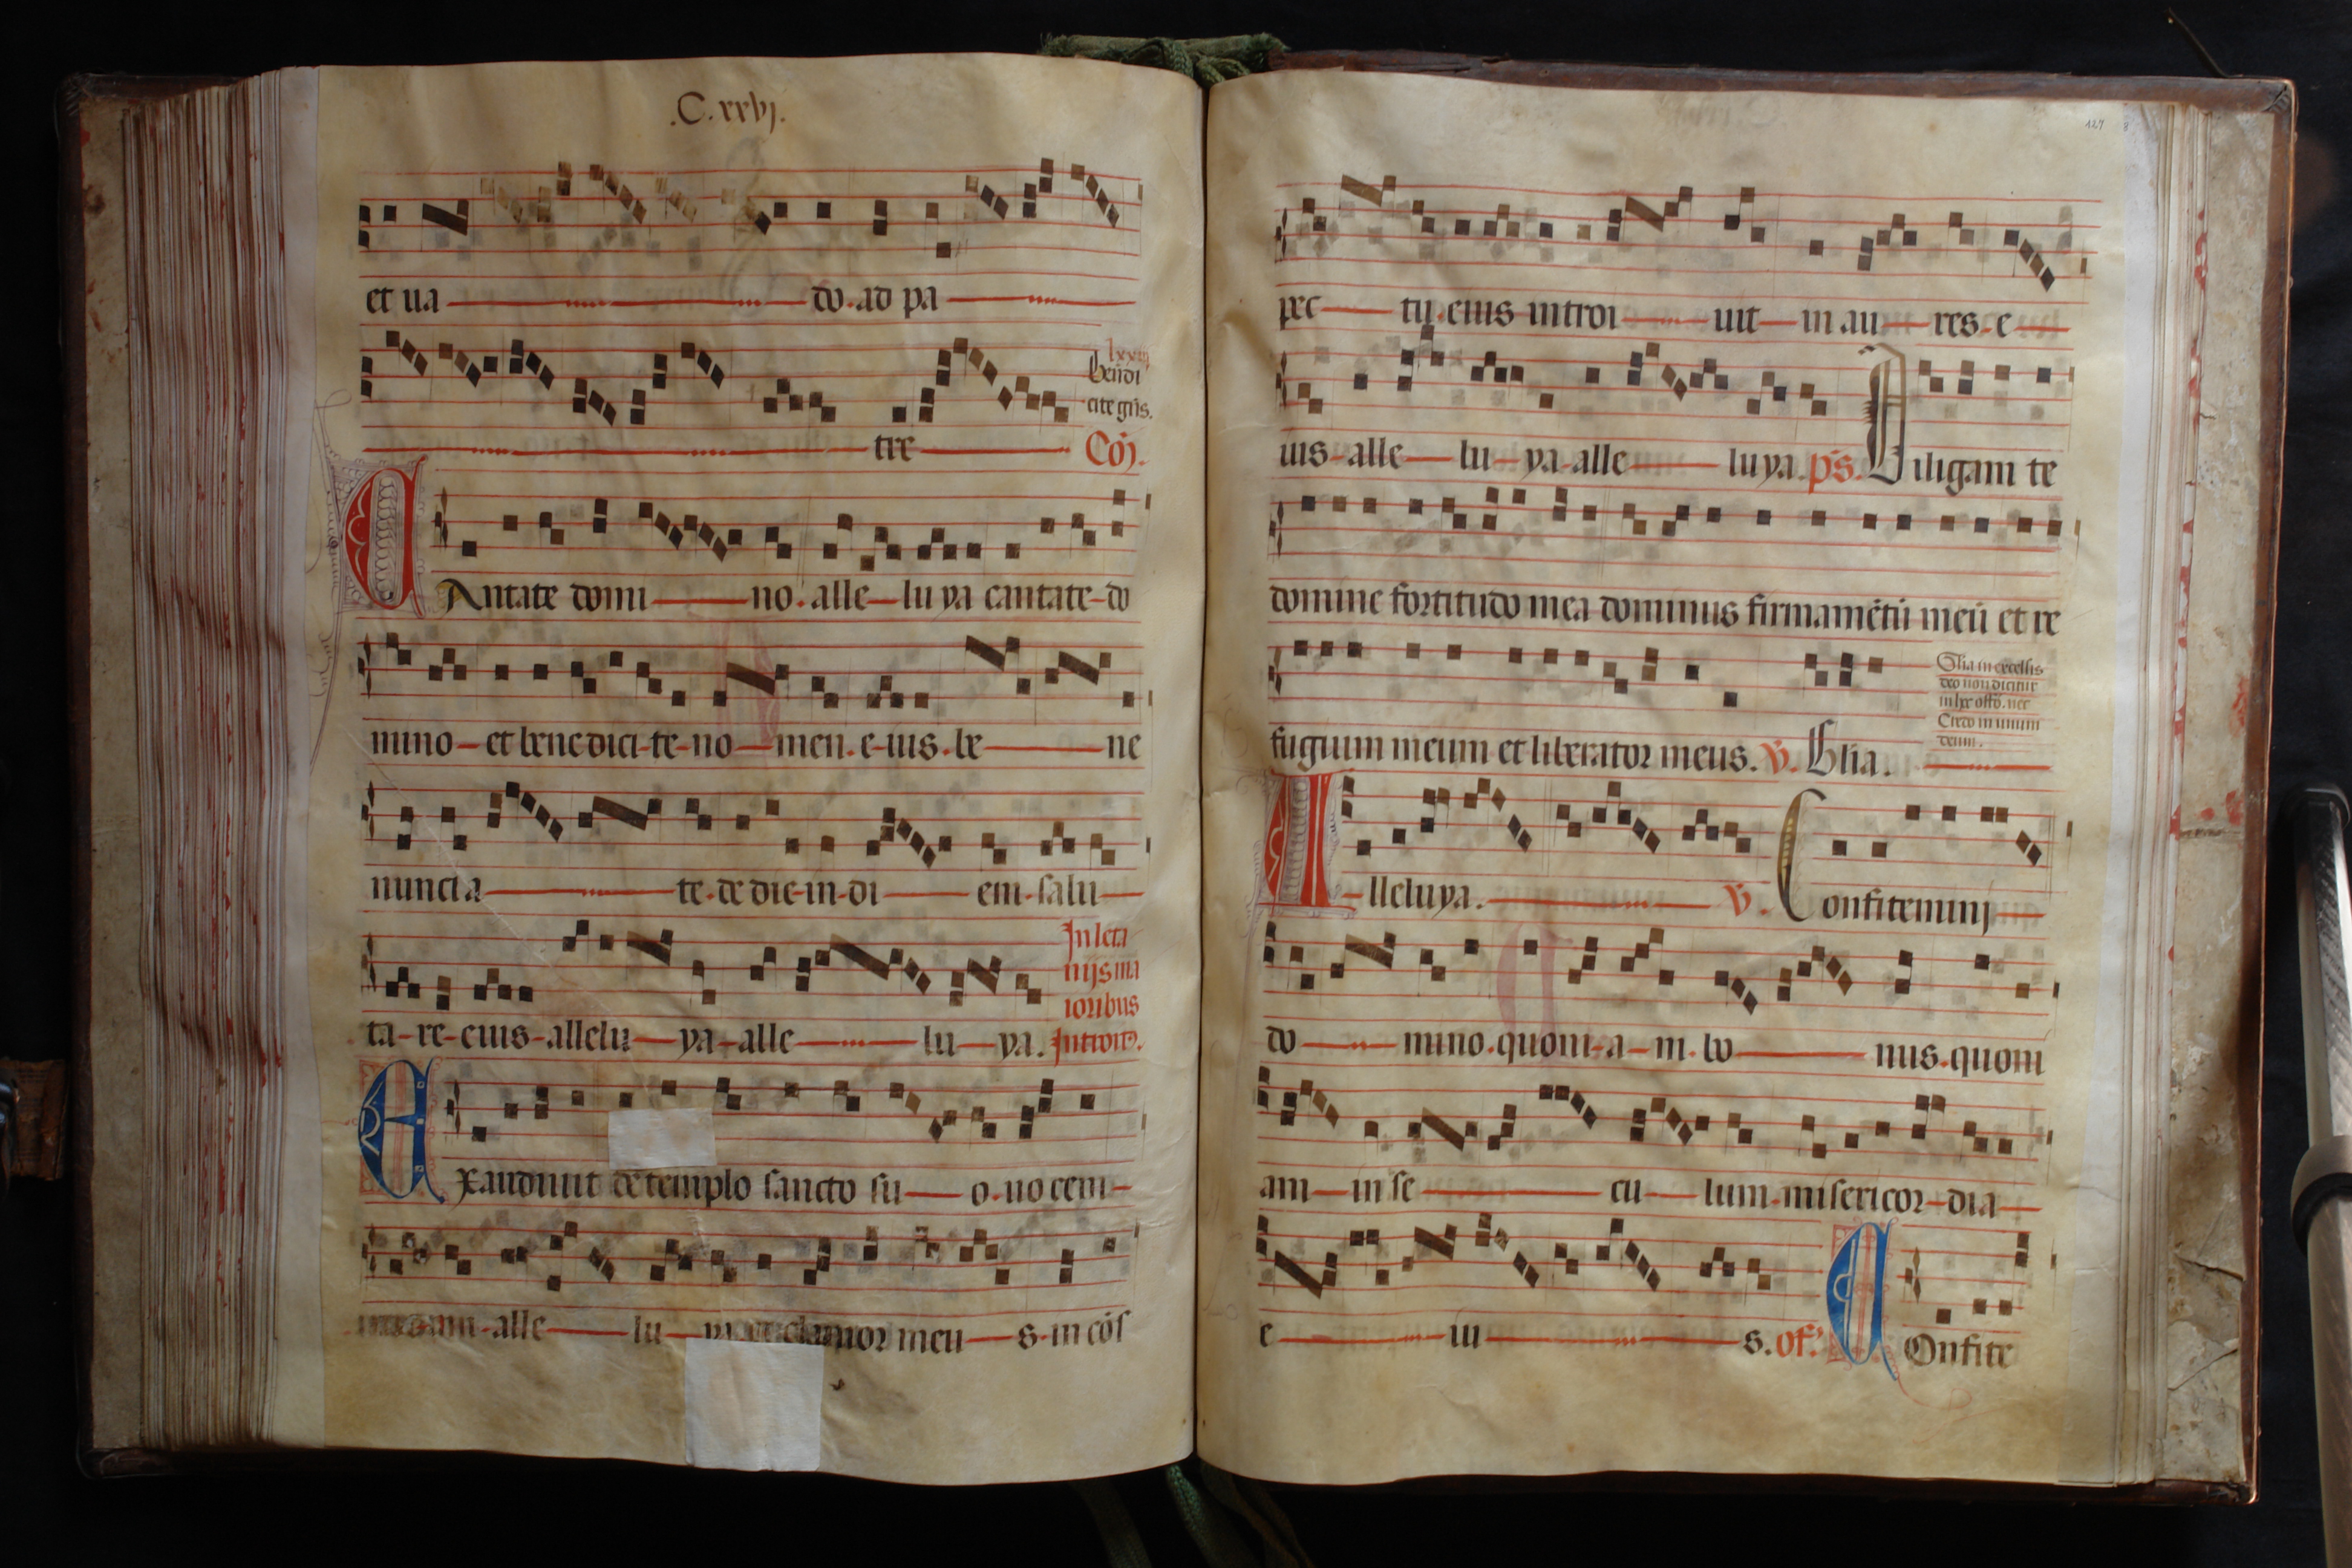 .C.xxvj.
et ua do. ad pa
lxxiij
b̄ndi
cite gñs.
tre Cõj.
CAntate domi no. alle lu ya cantate do
mino et benedici te no men. e ius. be ne
nuncia te. de die in di em. salu
In leta
nijs ma
ioribus
ta re eius allelu ya alle lu ya. Introit9.
Exaudiuit de templo sancto su o. uocem
meam alle lu ya et clamor meu s. in cōs
127
pec tu. eius introi uit in au res. e
ius alle lu ya alle lu ya. ps. Diligam te
domine fortitudo mea dominus firmamētū meū et re
Glia in excelsis
deo non dicitur
in hoc offō. nec
Credo in unum
deum.
fugium meum et liberator meus. V. Glia.
Alleluya. V. Confiteminj
do mino. quoni a m. bo nus. quoni
am in se cu lum. misericor dia
e iu s. of. COnfite